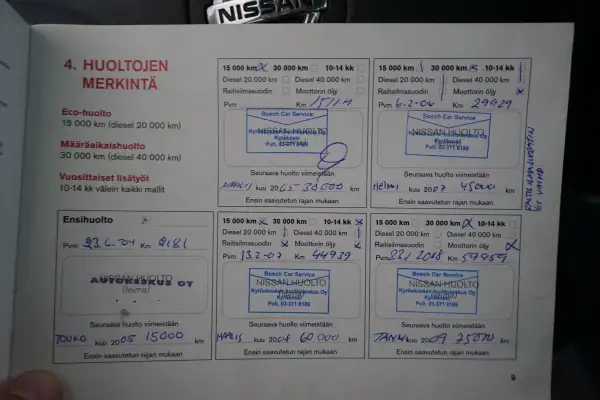 NISSAN
4. HUOLTOJEN
MERKINTÄ
Eco-huolto
15 000 km (diesel 20 000 km)
Määräaikaishuolto
30 000 km (diesel 40 000 km)
Vuosittaiset lisätyöt
10-14 kk välein kaikki mallit
15 000 km x 30 000 km 10-14 kk
Diesel 20 000 km Diesel 40 000 km
Raitisilmasuodin Moottorin öljy
Pvm Km
Bosch Car Service
NISSAN HUOLTO
Kyröskoski
Puh. 03-371 8189
Seuraava huolto viimeistään
kuu 20 05 30 000 km
Ensin saavutetun rajan mukaan
15 000 km 30 000 km 10-14 kk
Diesel 20 000 km Diesel 40 000 km
Raitisilmasuodin Moottorin öljy x
Pvm 6.2-06 Km 29929
Bosch Car Service
NISSAN HUOLTO
Kyröskoski
Puh. 03-371 8189
Seuraava huolto viimeistään
Helmi kuu 2007 45000 km
Ensin saavutetun rajan mukaan
RAITISILMASUODATIN
EI VAIHD.
Ensihuolto x
Pvm 23.6.-04 Km 2181
NISSAN HUOLTO
AUTOKESKUS OY
(leima)
Seuraava huolto viimeistään
TOUKO kuu 2005 15000 km
Ensin saavutetun rajan mukaan
15 000 km x 30 000 km 10-14 kk x
Diesel 20 000 km Diesel 40 000 km
Raitisilmasuodin x Moottorin öljy x
Pvm 13.2-07 Km 44939
Bosch Car Service
NISSAN HUOLTO
Kyröskosken huoltokeskus Oy
Kyröskoski
Puh. 03-371 8189
Seuraava huolto viimeistään
MAALIS kuu 2008 60000 km
Ensin saavutetun rajan mukaan
15 000 km 30 000 km x 10-14 kk
Diesel 20 000 km Diesel 40 000 km
Raitisilmasuodin Moottorin öljy x
Pvm 23/1 2008 Km 59959
Bosch Car Service
NISSAN HUOLTO
Kyröskosken huoltokeskus Oy
Kyröskoski
Puh. 03-371 8189
Seuraava huolto viimeistään
kuu 2009 75000 km
Ensin saavutetun rajan mukaan
9